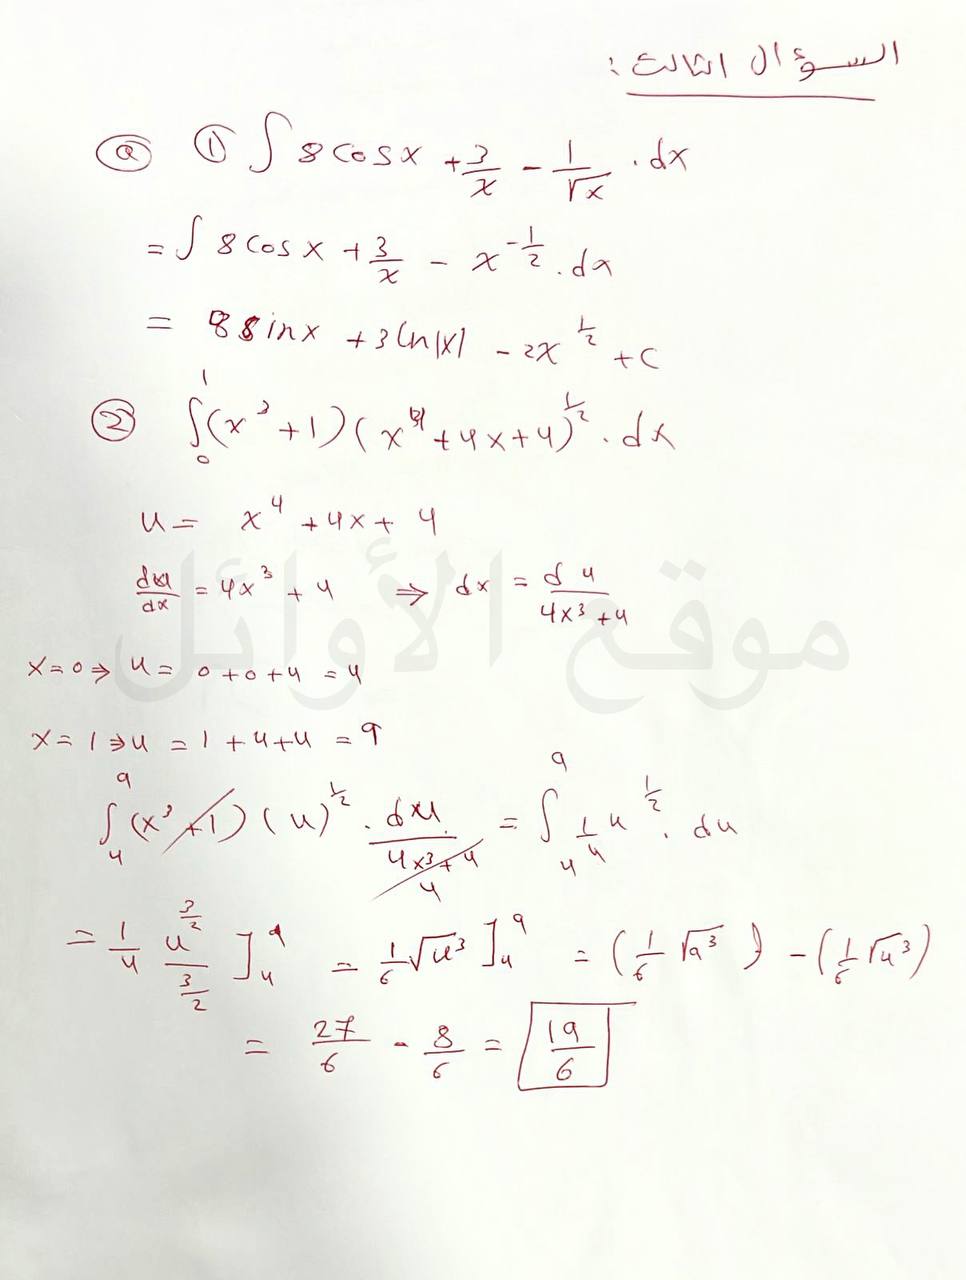 السؤال الثالث :
ⓐ ① ∫ 8 cos x + 3/x - 1/√x . dx
= ∫ 8 cos x + 3/x - x^(-1/2) . dx
= 8 sin x + 3 ln|x| - 2x^(1/2) + C
② ∫₀¹ (x³ + 1) (x⁴ + 4x + 4)^(1/2) . dx
u = x⁴ + 4x + 4
du/dx = 4x³ + 4 ⇒ dx = du/(4x³ + 4)
موقع الأوائل
x = 0 ⇒ u = 0 + 0 + 4 = 4
x = 1 ⇒ u = 1 + 4 + 4 = 9
∫₄⁹ (x³ + 1) (u)^(1/2) . du/(4x³ + 4) 4 = ∫₄⁹ 1/4 u^(1/2) . du
= 1/4 u^(3/2)/(3/2) ]₄⁹ = 1/6 √u³ ]₄⁹ = (1/6 √9³) - (1/6 √4³)
= 27/6 - 8/6 = 19/6